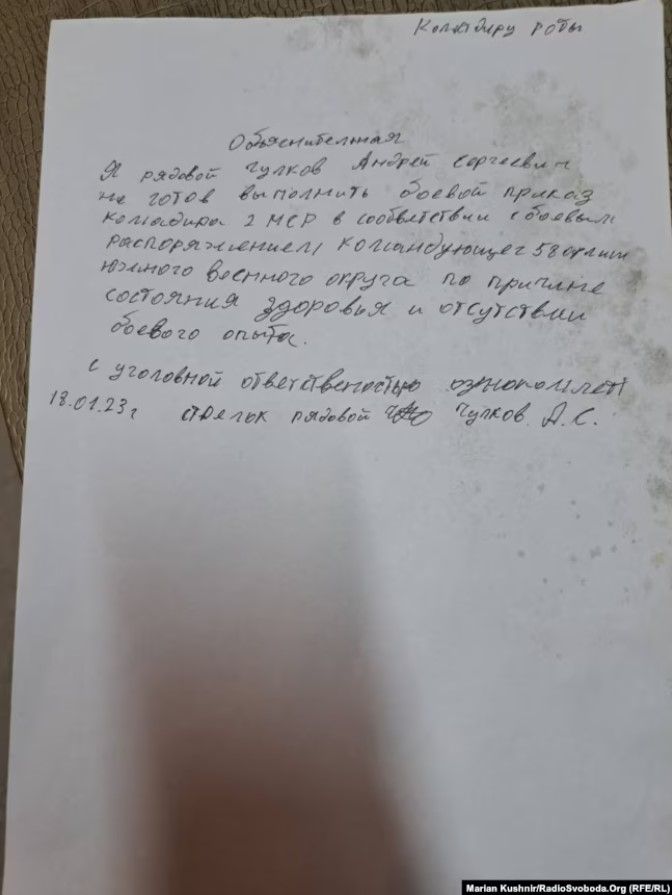 Командиру роты
Объяснительная
Я рядовой Чулков Андрей Сергеевич
не готов выполнить боевой приказ
командира 2 МСР в соответствии с боевым
распоряжением командующег 58 армии
южного военного округа по причине
состояния здоровья и отсутствии
боевого опыта.
с уголовной ответственостью ознакомлен
18.01.23г стрелок рядовой Чулков А.С.
Marian Kushnir/RadioSvoboda.Org (RFE/RL)